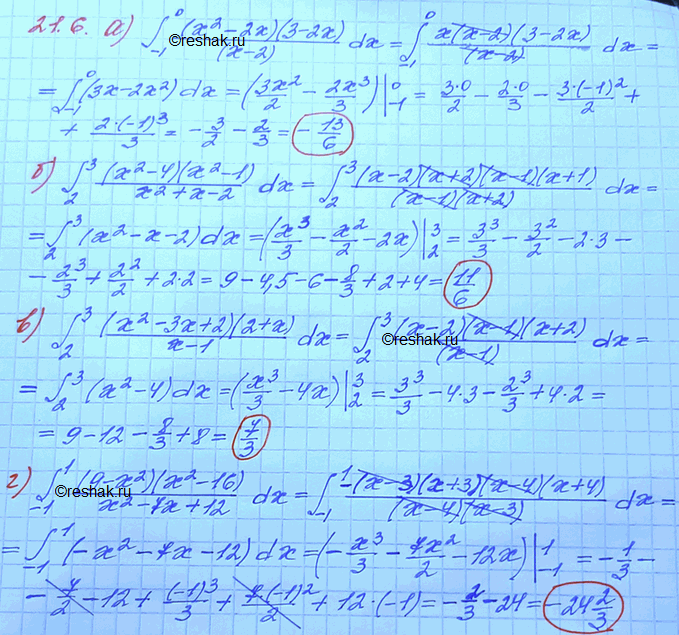 21.6. а) ∫₋₁⁰ (x²-2x)(3-2x)/(x-2) dx = ∫₋₁⁰ x(x-2)(3-2x)/(x-2) dx =
©reshak.ru
= ∫₋₁⁰ (3x-2x²) dx = (3x²/2 - 2x³/3)|₋₁⁰ = 3·0/2 - 2·0/3 - 3·(-1)²/2 +
+ 2·(-1)³/3 = -3/2 - 2/3 = -13/6
б) ∫₂³ (x²-4)(x²-1)/(x²+x-2) dx = ∫₂³ (x-2)(x+2)(x-1)(x+1)/((x-1)(x+2)) dx =
= ∫₂³ (x²-x-2) dx = (x³/3 - x²/2 - 2x)|₂³ = 3³/3 - 3²/2 - 2·3 -
- 2³/3 + 2²/2 + 2·2 = 9-4,5-6-8/3+2+4 = 11/6
в) ∫₂³ (x²-3x+2)(2+x)/(x-1) dx = ∫₂³ (x-2)(x-1)(x+2)/(x-1) dx =
©reshak.ru ©reshak.ru
= ∫₂³ (x²-4) dx = (x³/3 - 4x)|₂³ = 3³/3 - 4·3 - 2³/3 + 4·2 =
= 9-12-8/3+8 = 7/3
г) ∫₋₁¹ (9-x²)(x²-16)/(x²-7x+12) dx = ∫₋₁¹ -(x-3)(x+3)(x-4)(x+4)/((x-4)(x-3)) dx =
©reshak.ru
= ∫₋₁¹ (-x²-7x-12) dx = (-x³/3 - 7x²/2 - 12x)|₋₁¹ = -1/3 -
- 7/2 - 12 + (-1)³/3 + 7·(-1)²/2 + 12·(-1) = -2/3 - 24 = -24 2/3